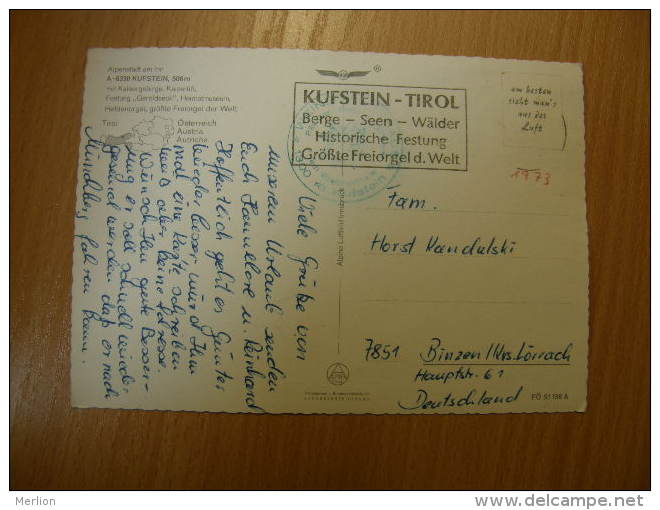 Alpenstadt am Inn
A-6330 KUFSTEIN, 506m
mit Kaisergebirge, Kaiserlift,
Festung „Geroldseck", Heimatmuseum,
Heldenorgel, größte Freiorgel der Welt
Tirol
Österreich
Austria
Autriche
®
KUFSTEIN - TIROL
Berge - Seen - Wälder
Historische Festung
Größte Freiorgel d. Welt
am besten
sieht man's
aus der
Luft
1973
Viele Grüße von
unserem Urlaub senden
Euch Hannelore u. Reinhard
Hoffentlich geht es Günter
wieder besser würd Ihm
mal eine Karte schreiben
weis aber keine Adresse.
Wünsch Ihm gute Besser-
ung er soll schnell wieder
gesund werden daß er nach
fahren kann.
Alpine Luftbild Innsbruck
Fam.
Horst Kandulski
7851 Binzen/Krs. Lörrach
Hauptstr. 61
Deutschland
FÖ 51138 A
Merlion
www.delcampe.net